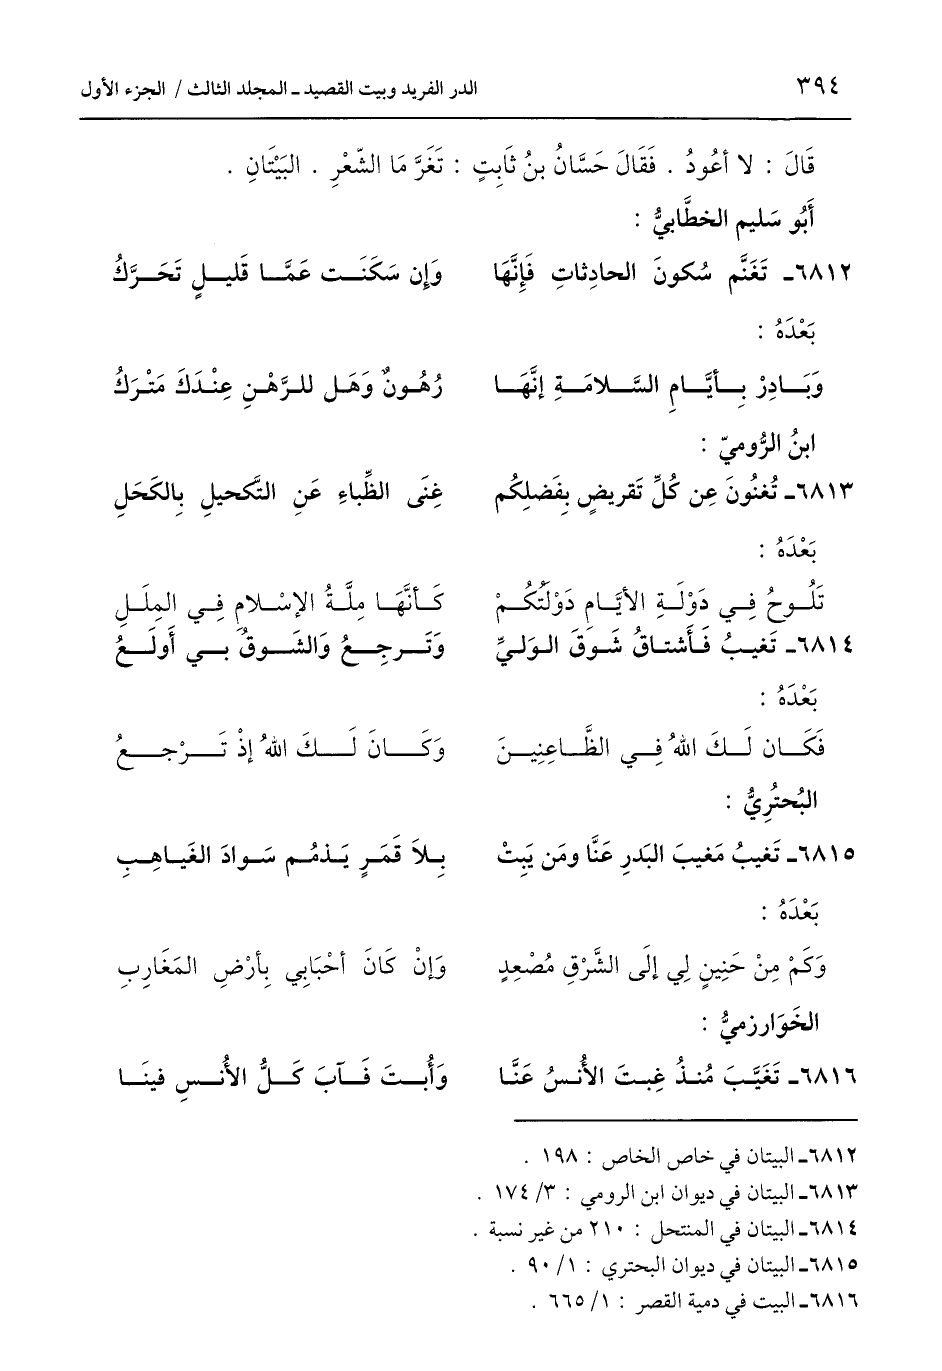 ٣٩٤ الدر الفريد وبيت القصيد ـ المجلد الثالث / الجزء الأول
قَالَ : لا أعُودُ . فَقَالَ حَسَّانُ بنُ ثَابِتٍ : تَغَرَّ مَا الشّعْرِ . البَيْتَانِ .
أَبُو سَليم الخطَّابيُّ :
٦٨١٢ـ تَغَنَّم سُكونَ الحادِثاتِ فَإِنَّهَا وَإِن سَكَنَـت عَمَّـا قَليـلٍ تَحَـرَّكُ
بَعْدَهُ :
وَبَـادِرْ بـأيَّـامِ السَّـلامَـةِ إنَّهَـا رُهُـونٌ وَهَـل للـرَّهْـنِ عِنْدَكَ مَتْرَكُ
ابنُ الرُّوميّ :
٦٨١٣ـ تُغنُونَ عِن كُلِّ تَقريضٍ بِفَضلِكُم غِنَى الظِّباءِ عَنِ التَّكحيلِ بِالكَحَلِ
بَعْدَهُ :
تَلُـوحُ فِـي دَوْلَـةِ الأيَّـامِ دَوْلَتُكُـمْ كَـأنَّهَـا مِلَّـةُ الإسْـلامِ فِـي المِلَـلِ
٦٨١٤ـ تَغيـبُ فَـأشتـاقُ شَـوقَ الـوَلـيِّ وَتَـرجِـعُ وَالشَّـوقُ بـي أَولَـعُ
بَعْدَهُ :
فَكَـان لَـكَ اللهُ فِـي الظَّـاعِنِيـنَ وَكَـانَ لَـكَ اللهُ إذْ تَـرْجـعُ
البُحتُرِيُّ :
٦٨١٥ـ تَغيبُ مَغيبَ البَدرِ عَنَّا ومَن يَبِتْ بِـلاَ قَمَـرٍ يَـذمُـم سَـوادَ الغَيـاهِـبِ
بَعْدَهُ :
وَكَمْ مِنْ حَنِينٍ لِي إلَى الشَّرْقِ مُصْعِدٍ وَإنْ كَانَ أحْبَابِي بِأرْضِ المَغَارِبِ
الخَوَارزميُّ :
٦٨١٦ـ تَغَيَّـبَ مُنـذُ غِبـتَ الأُنـسُ عَنَّـا وَأُبـتَ فَـآبَ كَـلُّ الأُنـسِ فينَـا
٦٨١٢ـ البيتان في خاص الخاص : ١٩٨ .
٦٨١٣ـ البيتان في ديوان ابن الرومي : ٣/ ١٧٤ .
٦٨١٤ـ البيتان في المنتحل : ٢١٠ من غير نسبة .
٦٨١٥ـ البيتان في ديوان البحتري : ١/ ٩٠ .
٦٨١٦ـ البيت في دمية القصر : ١/ ٦٦٥ .